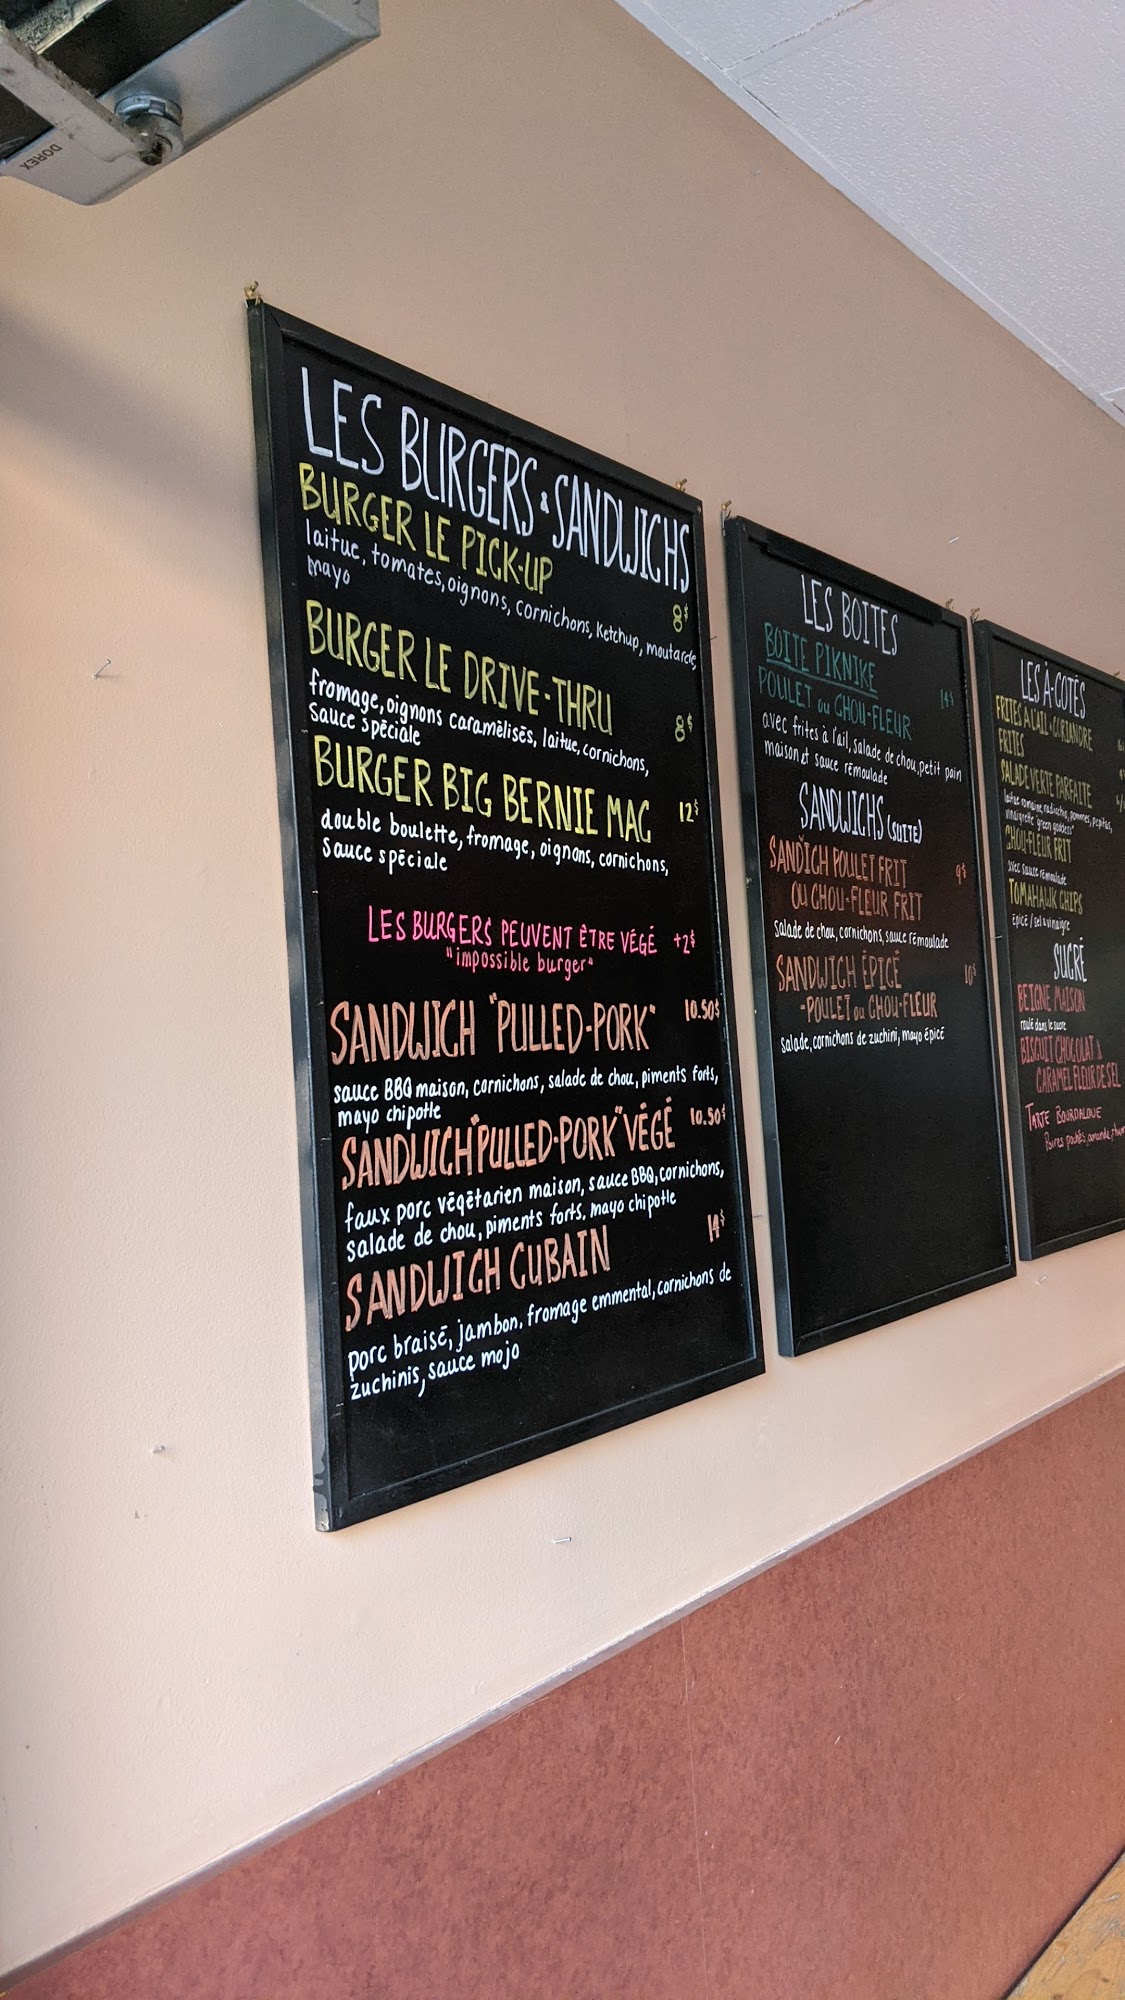 DOREX
LES BURGERS & SANDWICHS
BURGER LE PICK-UP
8$
laitue, tomates, oignons, cornichons, Ketchup, moutarde,
mayo
BURGER LE DRIVE-THRU
8$
fromage, oignons caramélisés, laitue, cornichons,
sauce spéciale
BURGER BIG BERNIE MAC 12$
double boulette, fromage, oignons, cornichons,
sauce spéciale
LES BURGERS PEUVENT ÊTRE VÉGÉ +2$
"impossible burger"
SANDWICH "PULLED-PORK" 10.50$
sauce BBQ maison, cornichons, salade de chou, piments forts,
mayo chipotle
SANDWICH "PULLED-PORK" VÉGÉ 10.50$
faux porc végétarien maison, sauce BBQ, cornichons,
salade de chou, piments forts, mayo chipotle
SANDWICH CUBAIN 14$
porc braisé, jambon, fromage emmental, cornichons de
zuchinis, sauce mojo
LES BOITES
BOITE PIKNIKE
14$
POULET ou CHOU-FLEUR
avec frites à l'ail, salade de chou, petit pain
maison et sauce rémoulade
SANDWICHS (SUITE)
SANDICH POULET FRIT 9$
OU CHOU-FLEUR FRIT
salade de chou, cornichons, sauce rémoulade
SANDWICH ÉPICÉ 10$
-POULET ou CHOU-FLEUR
salade, cornichons de zuchini, mayo épicé
LES À-CÔTÉS
FRITES À L'AIL & CORIANDRE
FRITES
SALADE VERTE PARFAITE
laitue romaine, radicchio, pommes, pepitas,
vinaigrette "green goddess"
CHOU-FLEUR FRIT
avec sauce rémoulade
TOMAHAWK CHIPS
épicé / sel & vinaigre
SUCRÉ
BEIGNE MAISON
roulé dans le sucre
BISCUIT CHOCOLAT &
CARAMEL FLEUR DE SEL
TARTE BOURDALOUE
amande